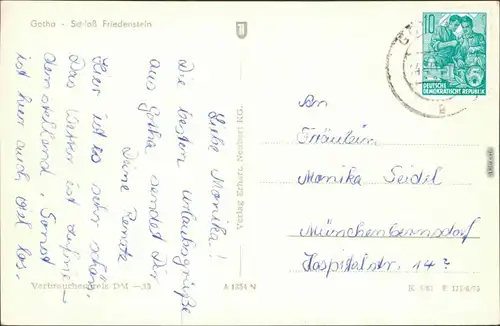 Gotha - Schloß Friedenstein
Liebe Monika!
Die besten Urlaubsgrüße
aus Gotha sendet Dir
Deine Renate
Hier ist es sehr schön.
Das Wetter ist
Sonst
ist hier auch viel los.
Verbraucherpreis DM —,33
A 1334 N
Verlag Erhart Neubert KG.
10
DEUTSCHE
DEMOKRATISCHE REPUBLIK
An
Fräulein
Monika Seidel
Münchenbernsdorf
Hospitalstr. 14?